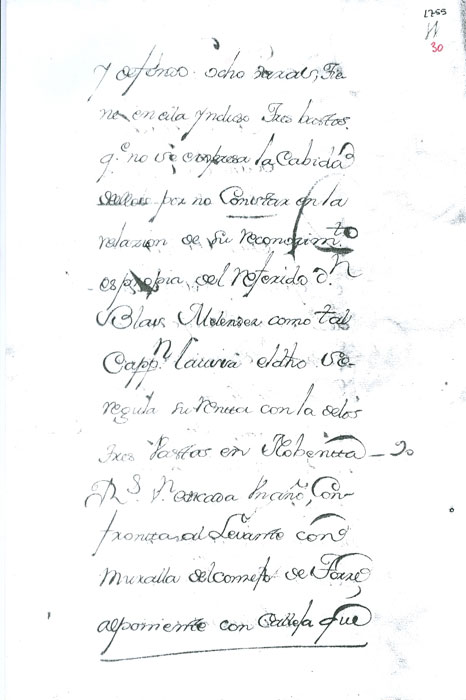 1755
30
y de fondo ocho varas, Tie
ne en ella Yncluso Tres bastas
q.e no se expresa la Cabida
de ellas por no Constar en la
relazion de su reconozim.to
es propia del referido D.n
Blas Melendez como tal
Capp.n la vive el dho se
regula su renta con la de los
tres bastas en Nobenta 90
R.s V.n cada un año, Con
fronta al Levante con
Muralla del comejo de
al poniente con Calleja que